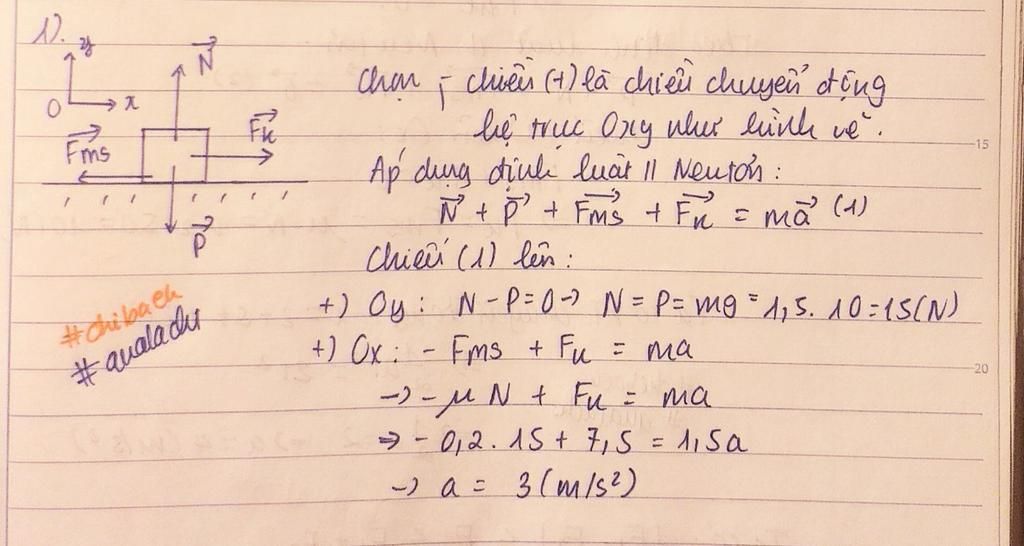 1).
y
O
x
N⃗
F⃗ms
F⃗k
P⃗
Chọn ; chiều (+) là chiều chuyển động
hệ trục Oxy như hình vẽ.
Áp dụng định luật II Newton:
N⃗ + P⃗ + F⃗ms + F⃗k = ma⃗ (1)
Chiếu (1) lên:
+) Oy: N - P = 0 → N = P = mg = 1,5. 10 = 15(N)
+) Ox: - Fms + Fk = ma
→ - μN + Fk = ma
⇒ - 0,2. 15 + 7,5 = 1,5a
→ a = 3 (m/s²)
#chibaek
15
20